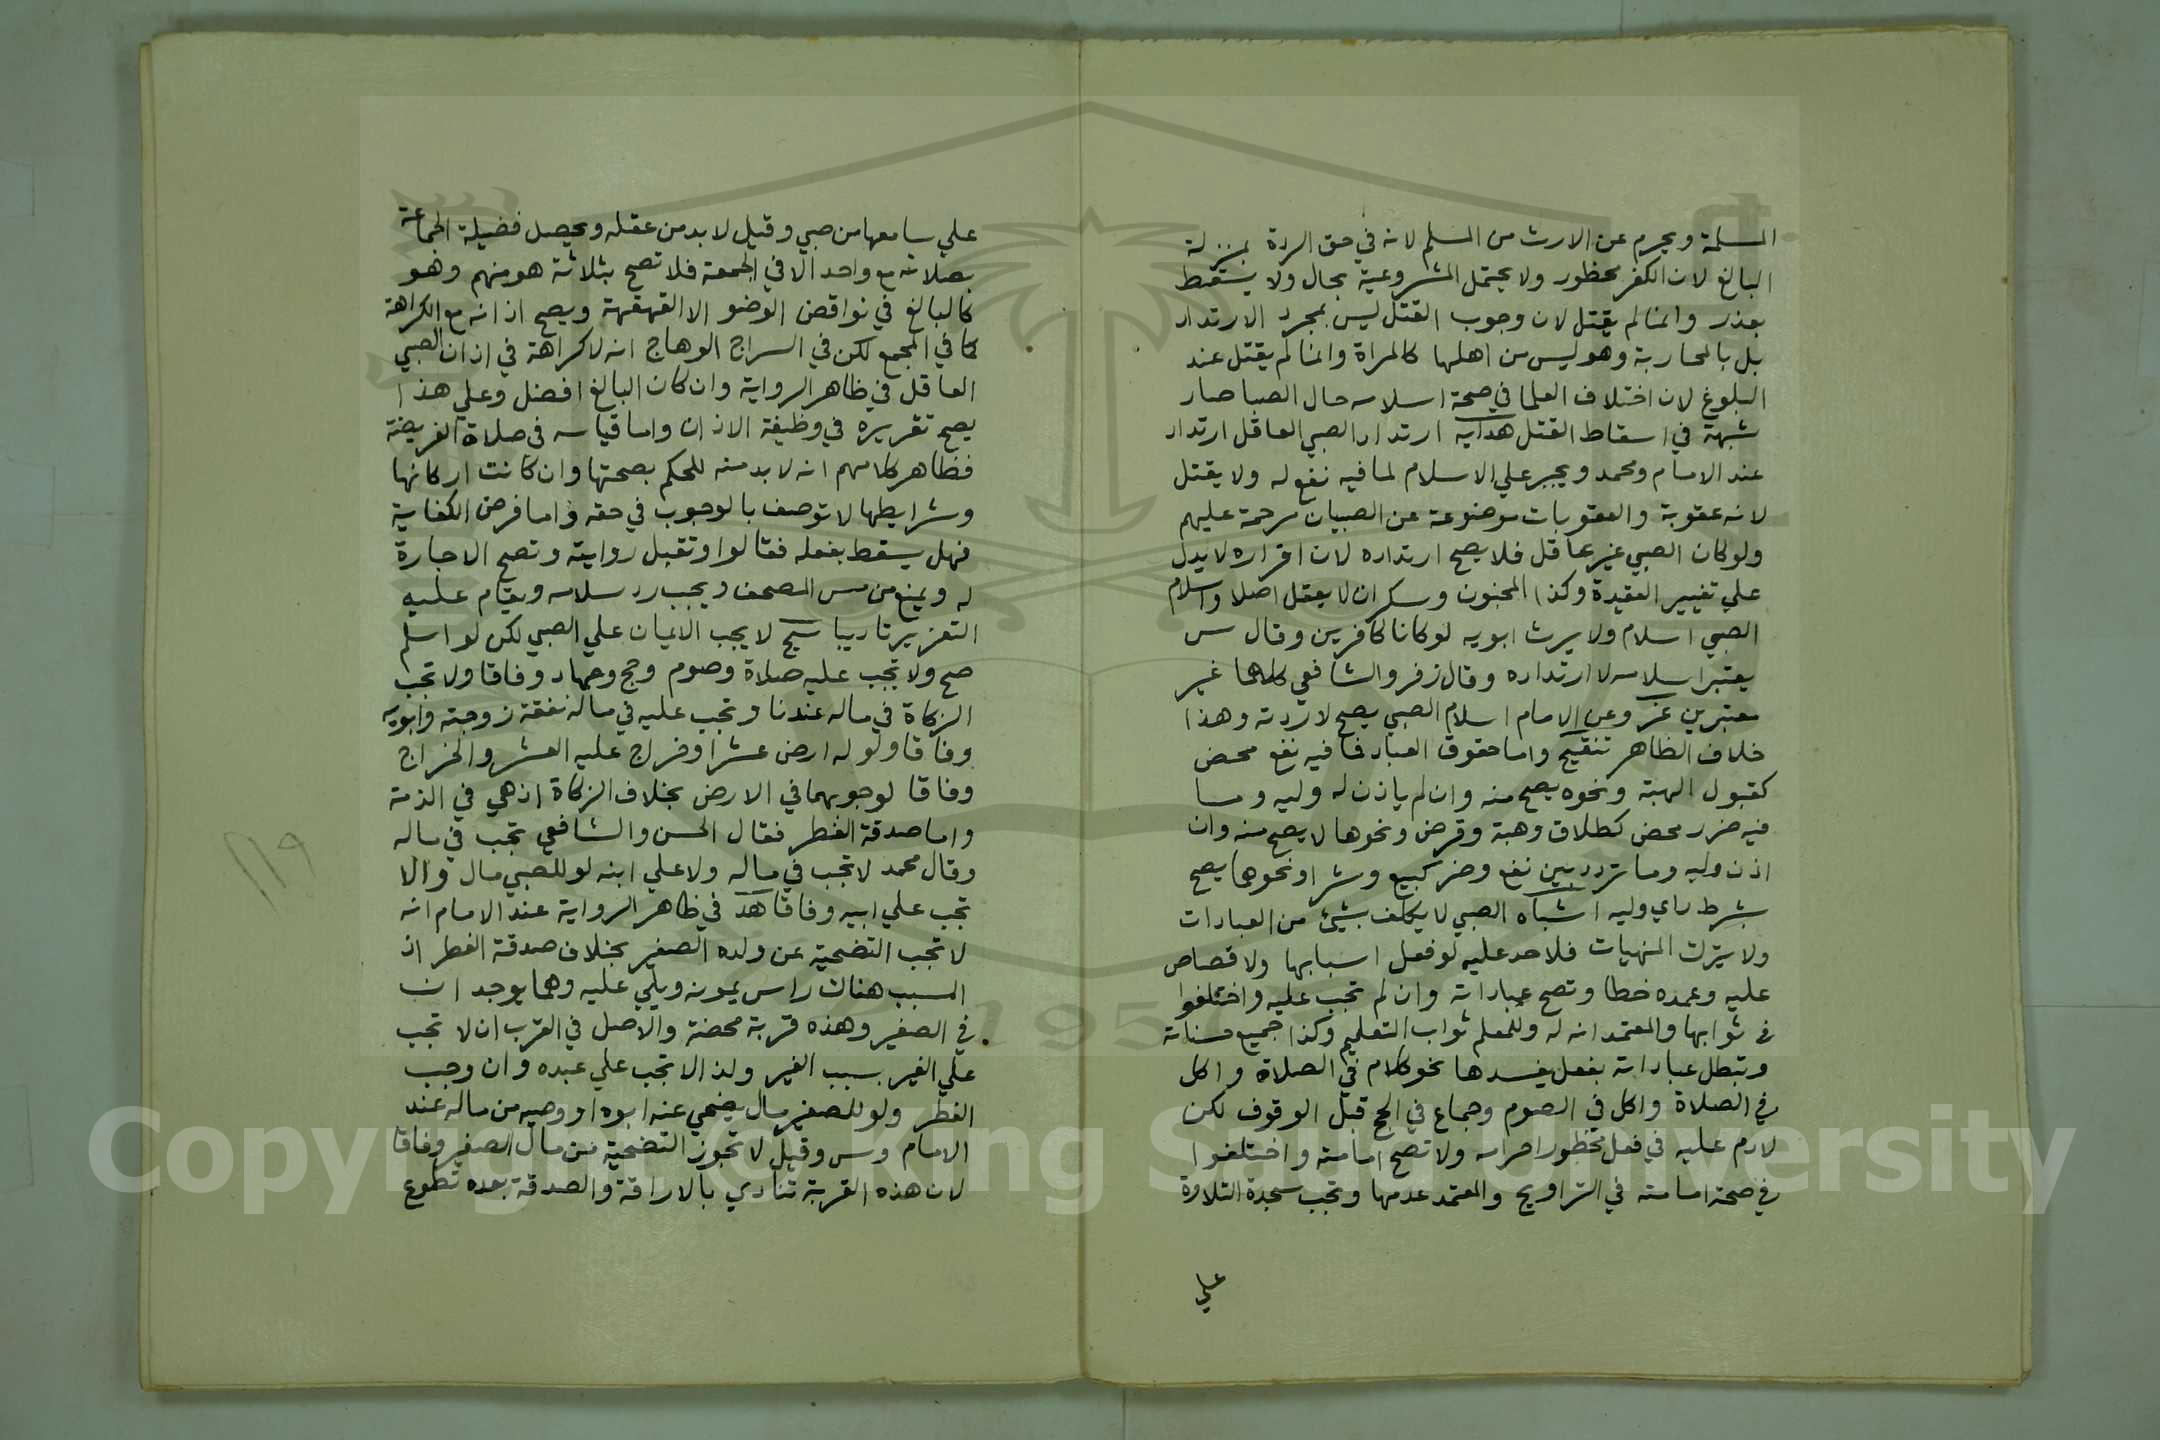 المسلمة ويحرم عن الارث من المسلم لانه في حق الردة بمنزلة
البالغ لان الكفر محظور ولا يحتمل المشروعية بحال ولا يسقط
بعذر وانما لم يقتل لان وجوب القتل ليس بمجرد الارتداد
بل بالمحاربة وهو ليس من اهلها كالمراة وانما لم يقتل عند
البلوغ لان اختلاف العلما في صحة اسلامه حال الصبا صار
شبهة في اسقاط القتل هداية ارتداد الصبي العاقل ارتداد
عند الامام ومحمد ويجبر علي الاسلام لما فيه نفع له ولا يقتل
لانه عقوبة والعقوبات موضوعة عن الصبيان مرحمة عليهم
ولو كان الصبي غير عاقل فلا يصح ارتداده لان اقراره لا يدل
علي تغيير العقيدة وكذا المجنون وسكران لا يعقل اصلا واسلام
الصبي اسلام ولا يرث ابويه لو كانا كافرين وقال س
يعتبر اسلامه لا ارتداده وقال زفر والشافعي كلاهما غير
معتبرين غر وعن الامام اسلام الصبي يصح لا ردته وهذا
خلاف الظاهر تنقيح واما حقوق العباد فما فيه نفع محض
كقبول الهبة ونحوه يصح منه وان لم ياذن له وليه وما
فيه ضرر محض كطلاق وهبة وقرض ونحوها لا يصح منه وان
اذن وليه وما تردد بين نفع وضر كبيع وشرا ونحوهما يصح
بشرط راي وليه اشباه الصبي لا يكلف بشيئ من العبادات
ولا بترك المنهيات فلا حد عليه لو فعل اسبابها ولا قصاص
عليه وعمده خطا وتصح عباداته وان لم تجب عليه واختلفوا
في ثوابها والمعتمد انه له وللمعلم ثواب التعليم وكذا جميع حسناته
وتبطل عباداته بفعل يفسدها نحو كلام في الصلاة واكل
في الصلاة واكل في الصوم وجماع في الحج قبل الوقوف لكن
لا دم عليه في فعل محظور احرامه ولا تصح امامته واختلفوا
في صحة امامته في التراويح والمعتمد عدمها وتجب سجدة التلاوة
علي
علي سامعها من صبي وقيل لا بد من عقله ويحصل فضيلة الجماعة
بصلاته مع واحد الا في الجمعة فلا تصح بثلاثة هو منهم وهو
كالبالغ في نواقض الوضو الا القهقهة ويصح اذانه مع الكراهة
كما في المجمع لكن في السراج الوهاج انه لا كراهة في اذان الصبي
العاقل في ظاهر الرواية وان كان البالغ افضل وعلي هذا
يصح تقريره في وظيفة الاذان واما قيامه في صلاة الفريضة
فظاهر كلامهم انه لا بد منه للحكم بصحتها وان كانت اركانها
وشرايطها لا توصف بالوجوب في حقه واما فرض الكفاية
فهل يسقط بفعله فقالوا وتقبل روايته وتصح الاجارة
له ويمنع من مس المصحف ويجب رد سلامه ويقام عليه
التعزير تاديبا سيج لا يجب الايمان علي الصبي لكن لو اسلم
صح ولا تجب عليه صلاة وصوم وحج وجهاد وفاقا ولا تجب
الزكاة في ماله عندنا وتجب عليه في ماله نفقة زوجته وابويه
وفاقا ولو له ارض عشر او خراج عليه العشر والخراج
وفاقا لوجوبهما في الارض بخلاف الزكاة اذ هي في الذمة
واما صدقة الفطر فقال الحسن والشافعي تجب في ماله
وقال محمد لا تجب في ماله ولا علي ابنه لو للصبي مال والا
تجب علي ابيه وفاقا هد في ظاهر الرواية عند الامام انه
لا تجب التضحية عن ولده الصغير بخلاف صدقة الفطر اذ
السبب هناك راس يمونه ويلي عليه وهما يوجدان
في الصغير وهذه قربة محضة والاصل في القرب ان لا تجب
علي الغير بسبب الغير ولذا لا تجب علي عبده وان وجب
الفطر ولو للصغير مال يضحي عنه ابوه او وصيه من ماله عند
الامام وس وقيل لا تجوز التضحية من مال الصغير وفاقا
لان هذه القربة تتادي بالاراقة والصدقة بعده تطوع
١١٩
1957
Copyright © King Saud University